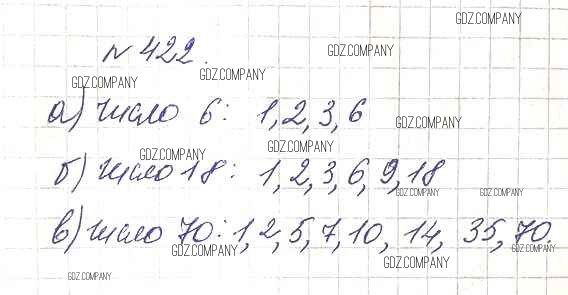 GDZ.COMPANY
№422.
GDZ.COMPANY
GDZ.COMPANY
GDZ.COMPANY
а) число 6: 1, 2, 3, 6
GDZ.COMPANY
GDZ.COMPANY
GDZ.COMPANY
б) число 18: 1, 2, 3, 6, 9, 18
GDZ.COMPANY
GDZ.COMPANY
в) число 70: 1, 2, 5, 7, 10, 14, 35, 70.
GDZ.COMPANY
GDZ.COMPANY
GDZ.COMPANY
GDZ.COMPANY